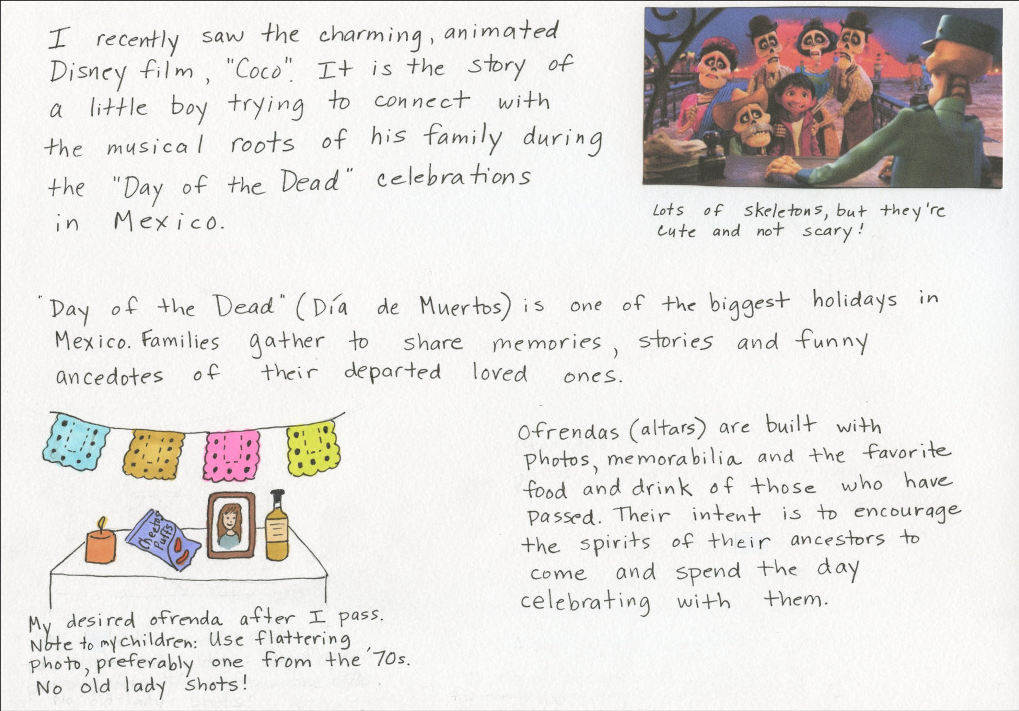 I recently saw the charming, animated
Disney film, "Coco". It is the story of
a little boy trying to connect with
the musical roots of his family during
the "Day of the Dead" celebrations
in Mexico.
Lots of skeletons, but they're
cute and not scary!
"Day of the Dead" (Día de Muertos) is one of the biggest holidays in
Mexico. Families gather to share memories, stories and funny
ancedotes of their departed loved ones.
Ofrendas (altars) are built with
photos, memorabilia and the favorite
food and drink of those who have
passed. Their intent is to encourage
the spirits of their ancestors to
come and spend the day
celebrating with them.
Cheetos
Puffs
My desired ofrenda after I pass.
Note to my children: Use flattering
photo, preferably one from the '70s.
No old lady shots!